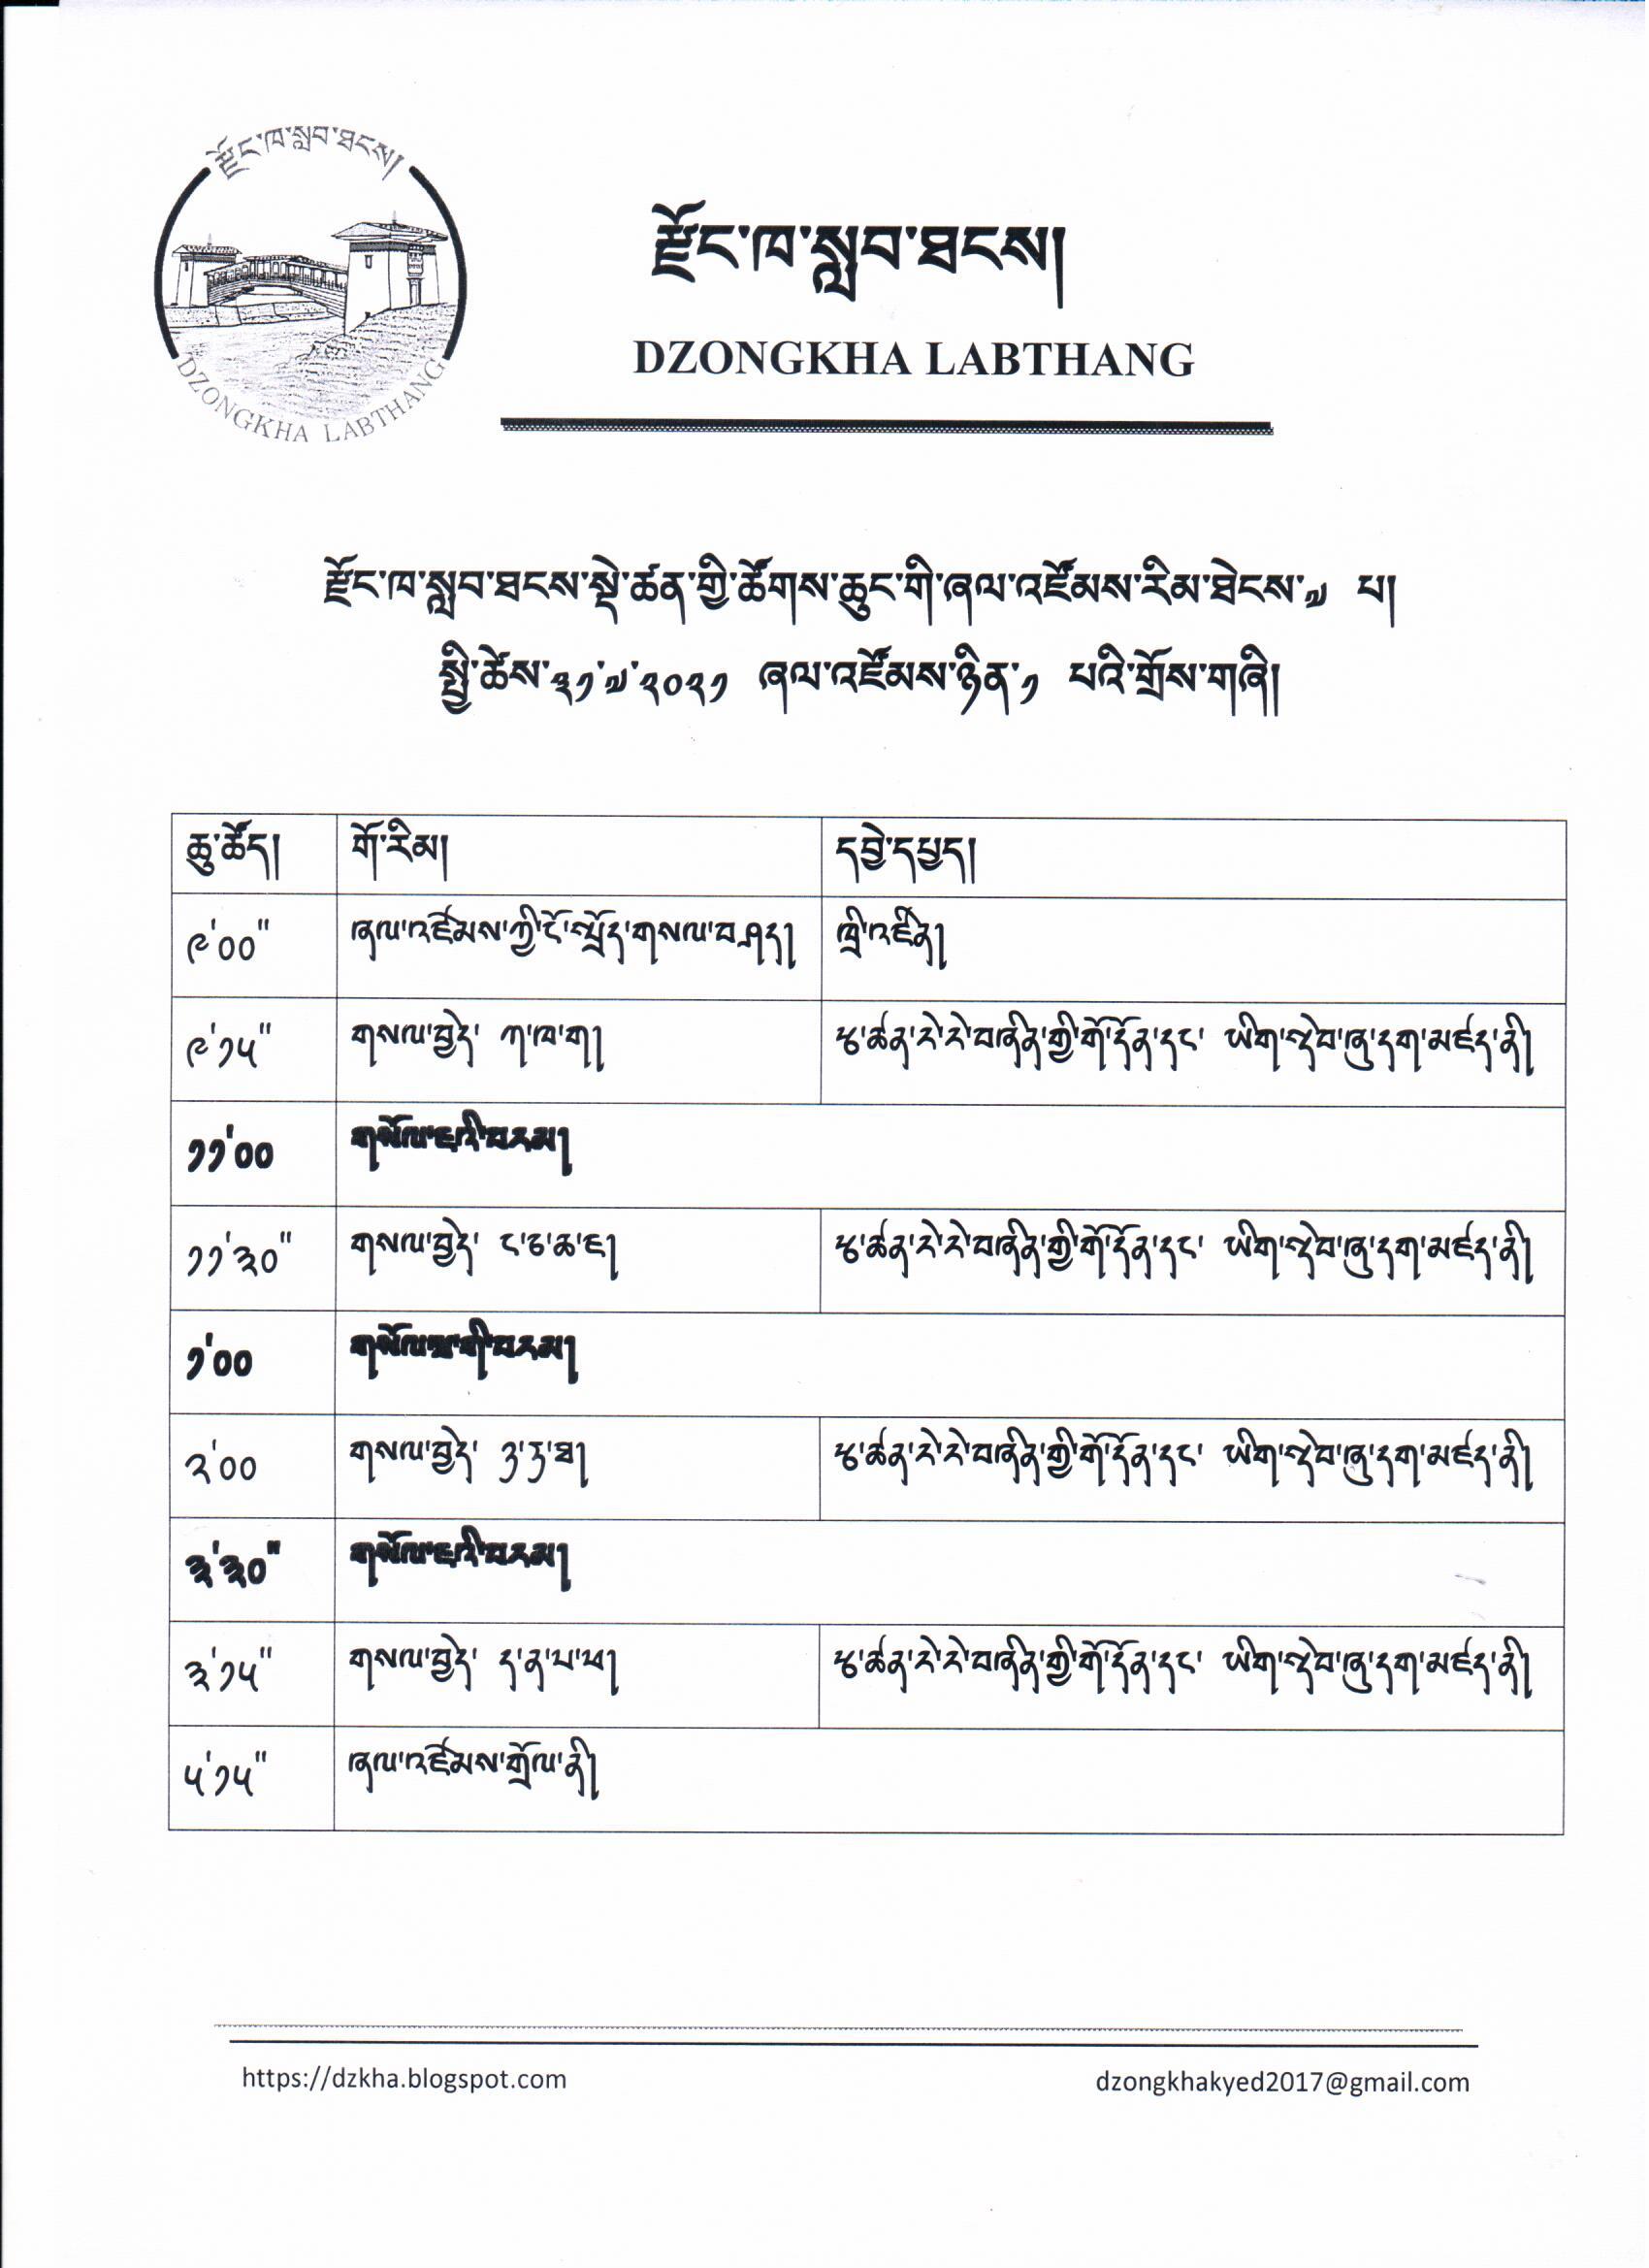 རྫོང་ཁ་སླབ་ཐངས།
རྫོང་ཁ་སླབ་ཐངས།
DZONGKHA LABTHANG
DZONGKHA LABTHANG
རྫོང་ཁ་སླབ་ཐངས་སྡེ་ཚན་གྱི་ཚོགས་ཆུང་གི་ཞལ་འཛོམས་རིམ་ཐེངས་༧ པ།
སྤྱི་ཚེས་༣༡་༧་༢༠༢༡ ཞལ་འཛོམས་ཉིན་༡ པའི་གྲོས་གཞི།
ཆུ་ཚོད། གོ་རིམ། དབྱེ་དཔྱད།
༩'༠༠" ཞལ་འཛོམས་ཀྱི་ངོ་སྤྲོད་གསལ་བཤད། ཁྲི་འཛིན།
༩'༡༥" གསལ་བྱེད་ ཀ་ཁ་ག། ཕྱ་ཚན་རེ་རེ་བཞིན་གྱི་གོ་དོན་དང་ ཡིག་སྡེབ་ཞུ་དག་མཛད་ནི།
༡༡'༠༠ གསོལ་ཇའི་བརམ།
༡༡'༣༠" གསལ་བྱེད་ ང་ཅ་ཆ་ཇ། ཕྱ་ཚན་རེ་རེ་བཞིན་གྱི་གོ་དོན་དང་ ཡིག་སྡེབ་ཞུ་དག་མཛད་ནི།
༡'༠༠
༢'༠༠ གསལ་བྱེད་ ཉ་ཏ་ཐ། ཕྱ་ཚན་རེ་རེ་བཞིན་གྱི་གོ་དོན་དང་ ཡིག་སྡེབ་ཞུ་དག་མཛད་ནི།
༣'༣༠" གསོལ་ཇའི་བརམ།
༣'༡༥" གསལ་བྱེད་ ད་ན་པ་ཕ། ཕྱ་ཚན་རེ་རེ་བཞིན་གྱི་གོ་དོན་དང་ ཡིག་སྡེབ་ཞུ་དག་མཛད་ནི།
༥'༡༥" ཞལ་འཛོམས་གྲོལ་ནི།
https://dzkha.blogspot.com dzongkhakyed2017@gmail.com